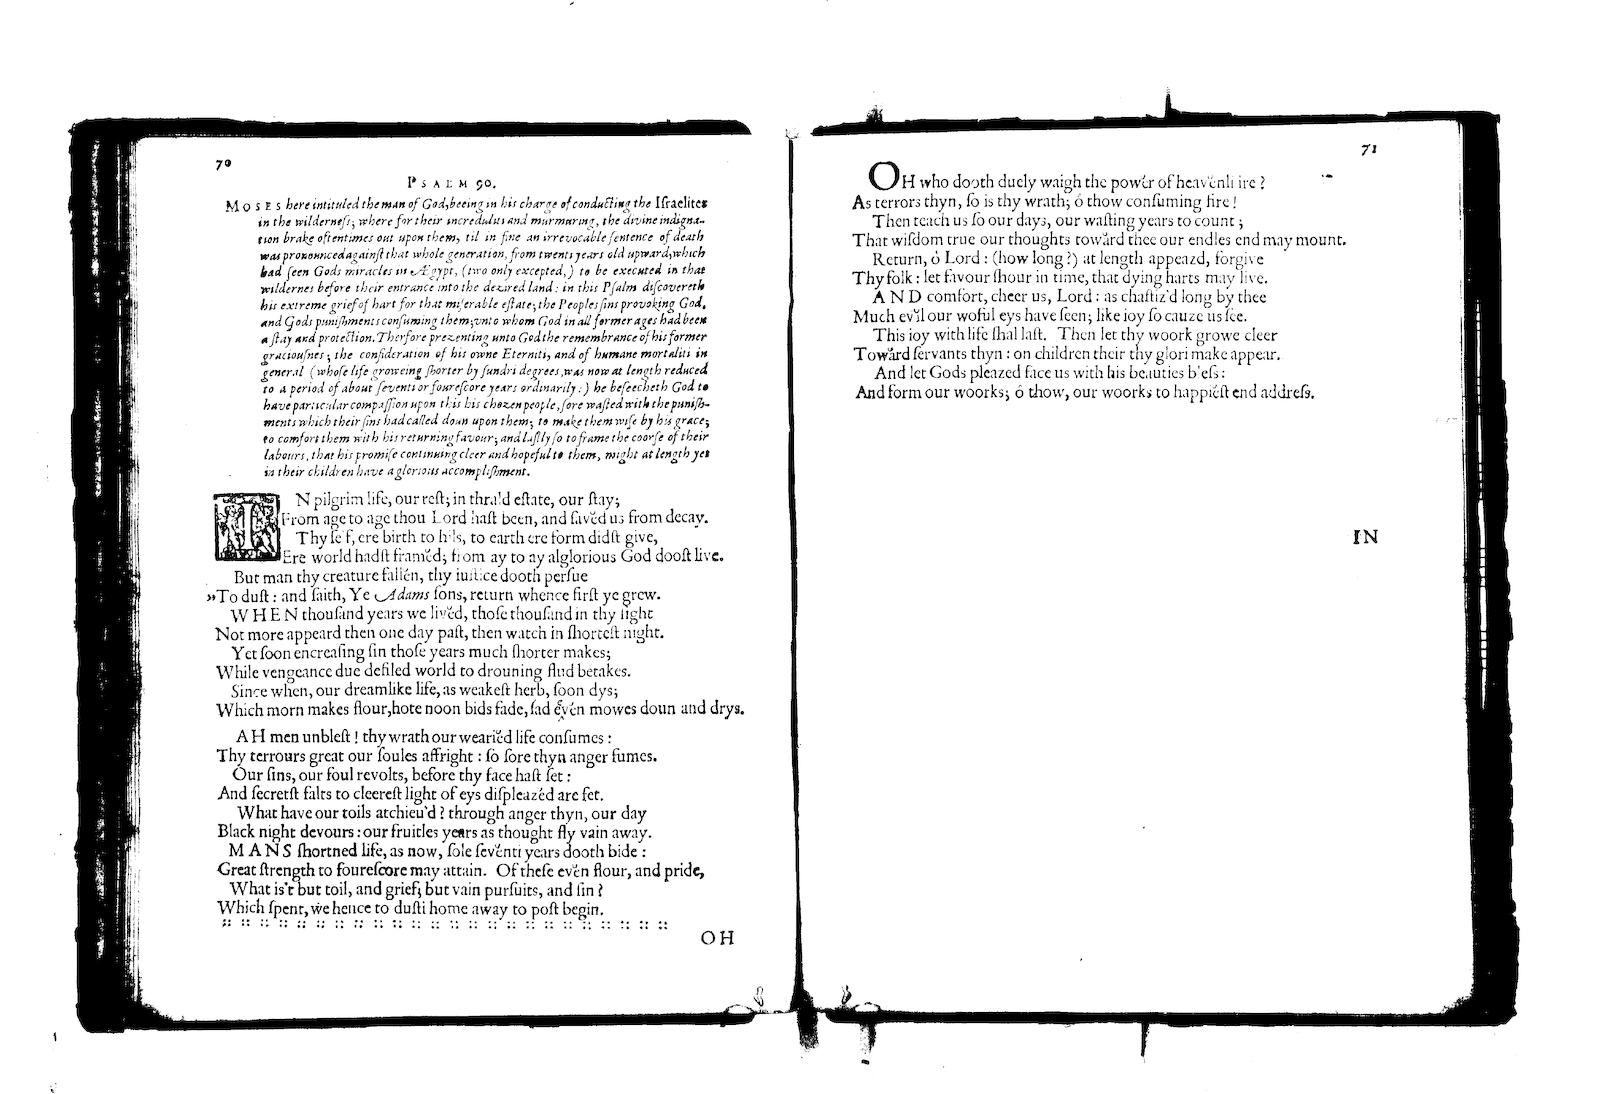 70
PSALM 90.
MOSES here intituled the man of God, beeing in his charge of conducting the Iſraelites
in the wilderneſs; where for their incredulus and murmuring, the divine indigna-
tion brake oftentimes out upon them, til in fine an irrevocable ſentence of death
was pronounced againſt that whole generation, from twenti years old upward, which
had ſeen Gods miracles in Ægypt, (two only excepted,) to be executed in that
wildernes before their entrance into the dezired land: in this Pſalm diſcovereth
his extreme grief of hart for that miſerable eſtate; the Peoples ſins provoking God,
and Gods puniſhments conſuming them; unto whom God in all former ages had been
a ſtay and protection. Therfore prezenting unto God the remembrance of his former
graciouſnes; the conſideration of his owne Eterniti, and of humane mortaliti in
general (whoſe life groweing ſhorter by ſundri degrees, was now at length reduced
to a period of about ſeventi or foureſcore years ordinarily:) he beſeecheth God to
have particular compaſſion upon this his chozen people, ſore waſted with the puniſh-
ments which their ſins had called doun upon them; to make them wiſe by his grace;
to comfort them with his returning favour; and laſtly ſo to frame the coorſe of their
labours, that his promiſe continuing cleer and hopeful to them, might at length yet
in their children have a glorious accompliſhment.
IN pilgrim life, our reſt; in thral'd eſtate, our ſtay;
From age to age thou Lord haſt been, and ſavĕd us from decay.
Thy ſelf, ere birth to hils, to earth ere form didſt give,
Ere world hadſt framĕd; from ay to ay alglorious God dooſt live.
But man thy creature fallĕn, thy iuſtice dooth perſue
»To duſt: and ſaith, Ye Adams ſons, return whence firſt ye grew.
WHEN thouſand years we livĕd, thoſe thouſand in thy ſight
Not more appeard then one day paſt, then watch in ſhorteſt night.
Yet ſoon encreaſing ſin thoſe years much ſhorter makes;
While vengeance due defiled world to drouning flud betakes.
Since when, our dreamlike life, as weakeſt herb, ſoon dys;
Which morn makes flour, hote noon bids fade, ſad ĕvĕn mowes doun and drys.
AH men unbleſt! thy wrath our weariĕd life conſumes:
Thy terrours great our ſoules affright: ſo ſore thyn anger fumes.
Our ſins, our foul revolts, before thy face haſt ſet:
And ſecretſt falts to cleereſt light of eys diſpleazĕd are ſet.
What have our toils atchieu'd? through anger thyn, our day
Black night devours: our fruitles years as thought fly vain away.
MANS ſhortned life, as now, ſole ſevĕnti years dooth bide:
Great ſtrength to foureſcore may attain. Of theſe evĕn flour, and pride,
What is't but toil, and grief; but vain purſuits, and ſin?
Which ſpent, we hence to duſti home away to poſt begin.
OH
71
OH who dooth duely waigh the powĕr of heavĕnli ire?
As terrors thyn, ſo is thy wrath; ó thow conſuming fire!
Then teach us ſo our days, our waſting years to count;
That wiſdom true our thoughts towărd thee our endles end may mount.
Return, ó Lord: (how long?) at length appeazd, forgive
Thy folk: let favour ſhour in time, that dying harts may live.
AND comfort, cheer us, Lord: as chaſtiz'd long by thee
Much evĭl our woful eys have ſeen; like ioy ſo cauze us ſee.
This ioy with life ſhal laſt. Then let thy woork growe cleer
Towărd ſervants thyn: on children their thy glori make appear.
And let Gods pleazed face us with his beauties bleſs:
And form our woorks; ó thow, our woorks to happiĕſt end addreſs.
IN